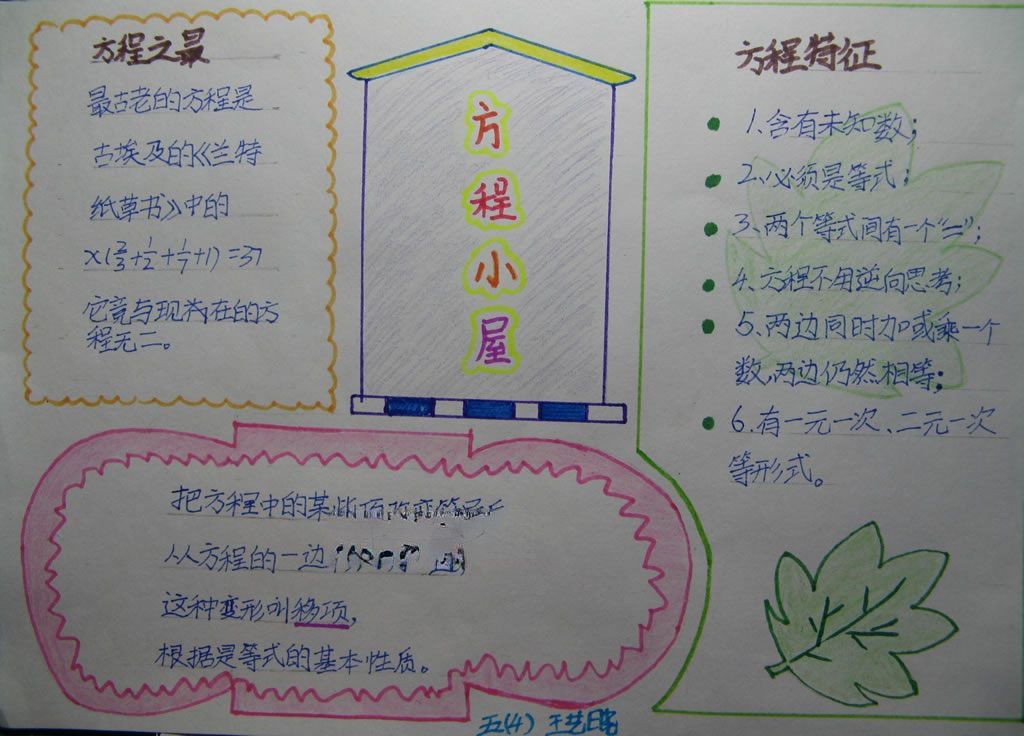 方程之最
最古老的方程是
古埃及的《兰特
纸草书》中的
x(2/3+1/2+1/7+1)=37
它竟与现我在的方
程无二。
方程小屋
方程特征
1、含有未知数;
2、必须是等式;
3、两个等式间有一个“=”;
4、方程不用逆向思考;
5、两边同时加或乘一个
数,两边仍然相等;
6、有一元一次、二元一次
等形式。
把方程中的某些项改变
从方程的一边
这种变形叫移项,
根据是等式的基本性质。
五(4) 王艺